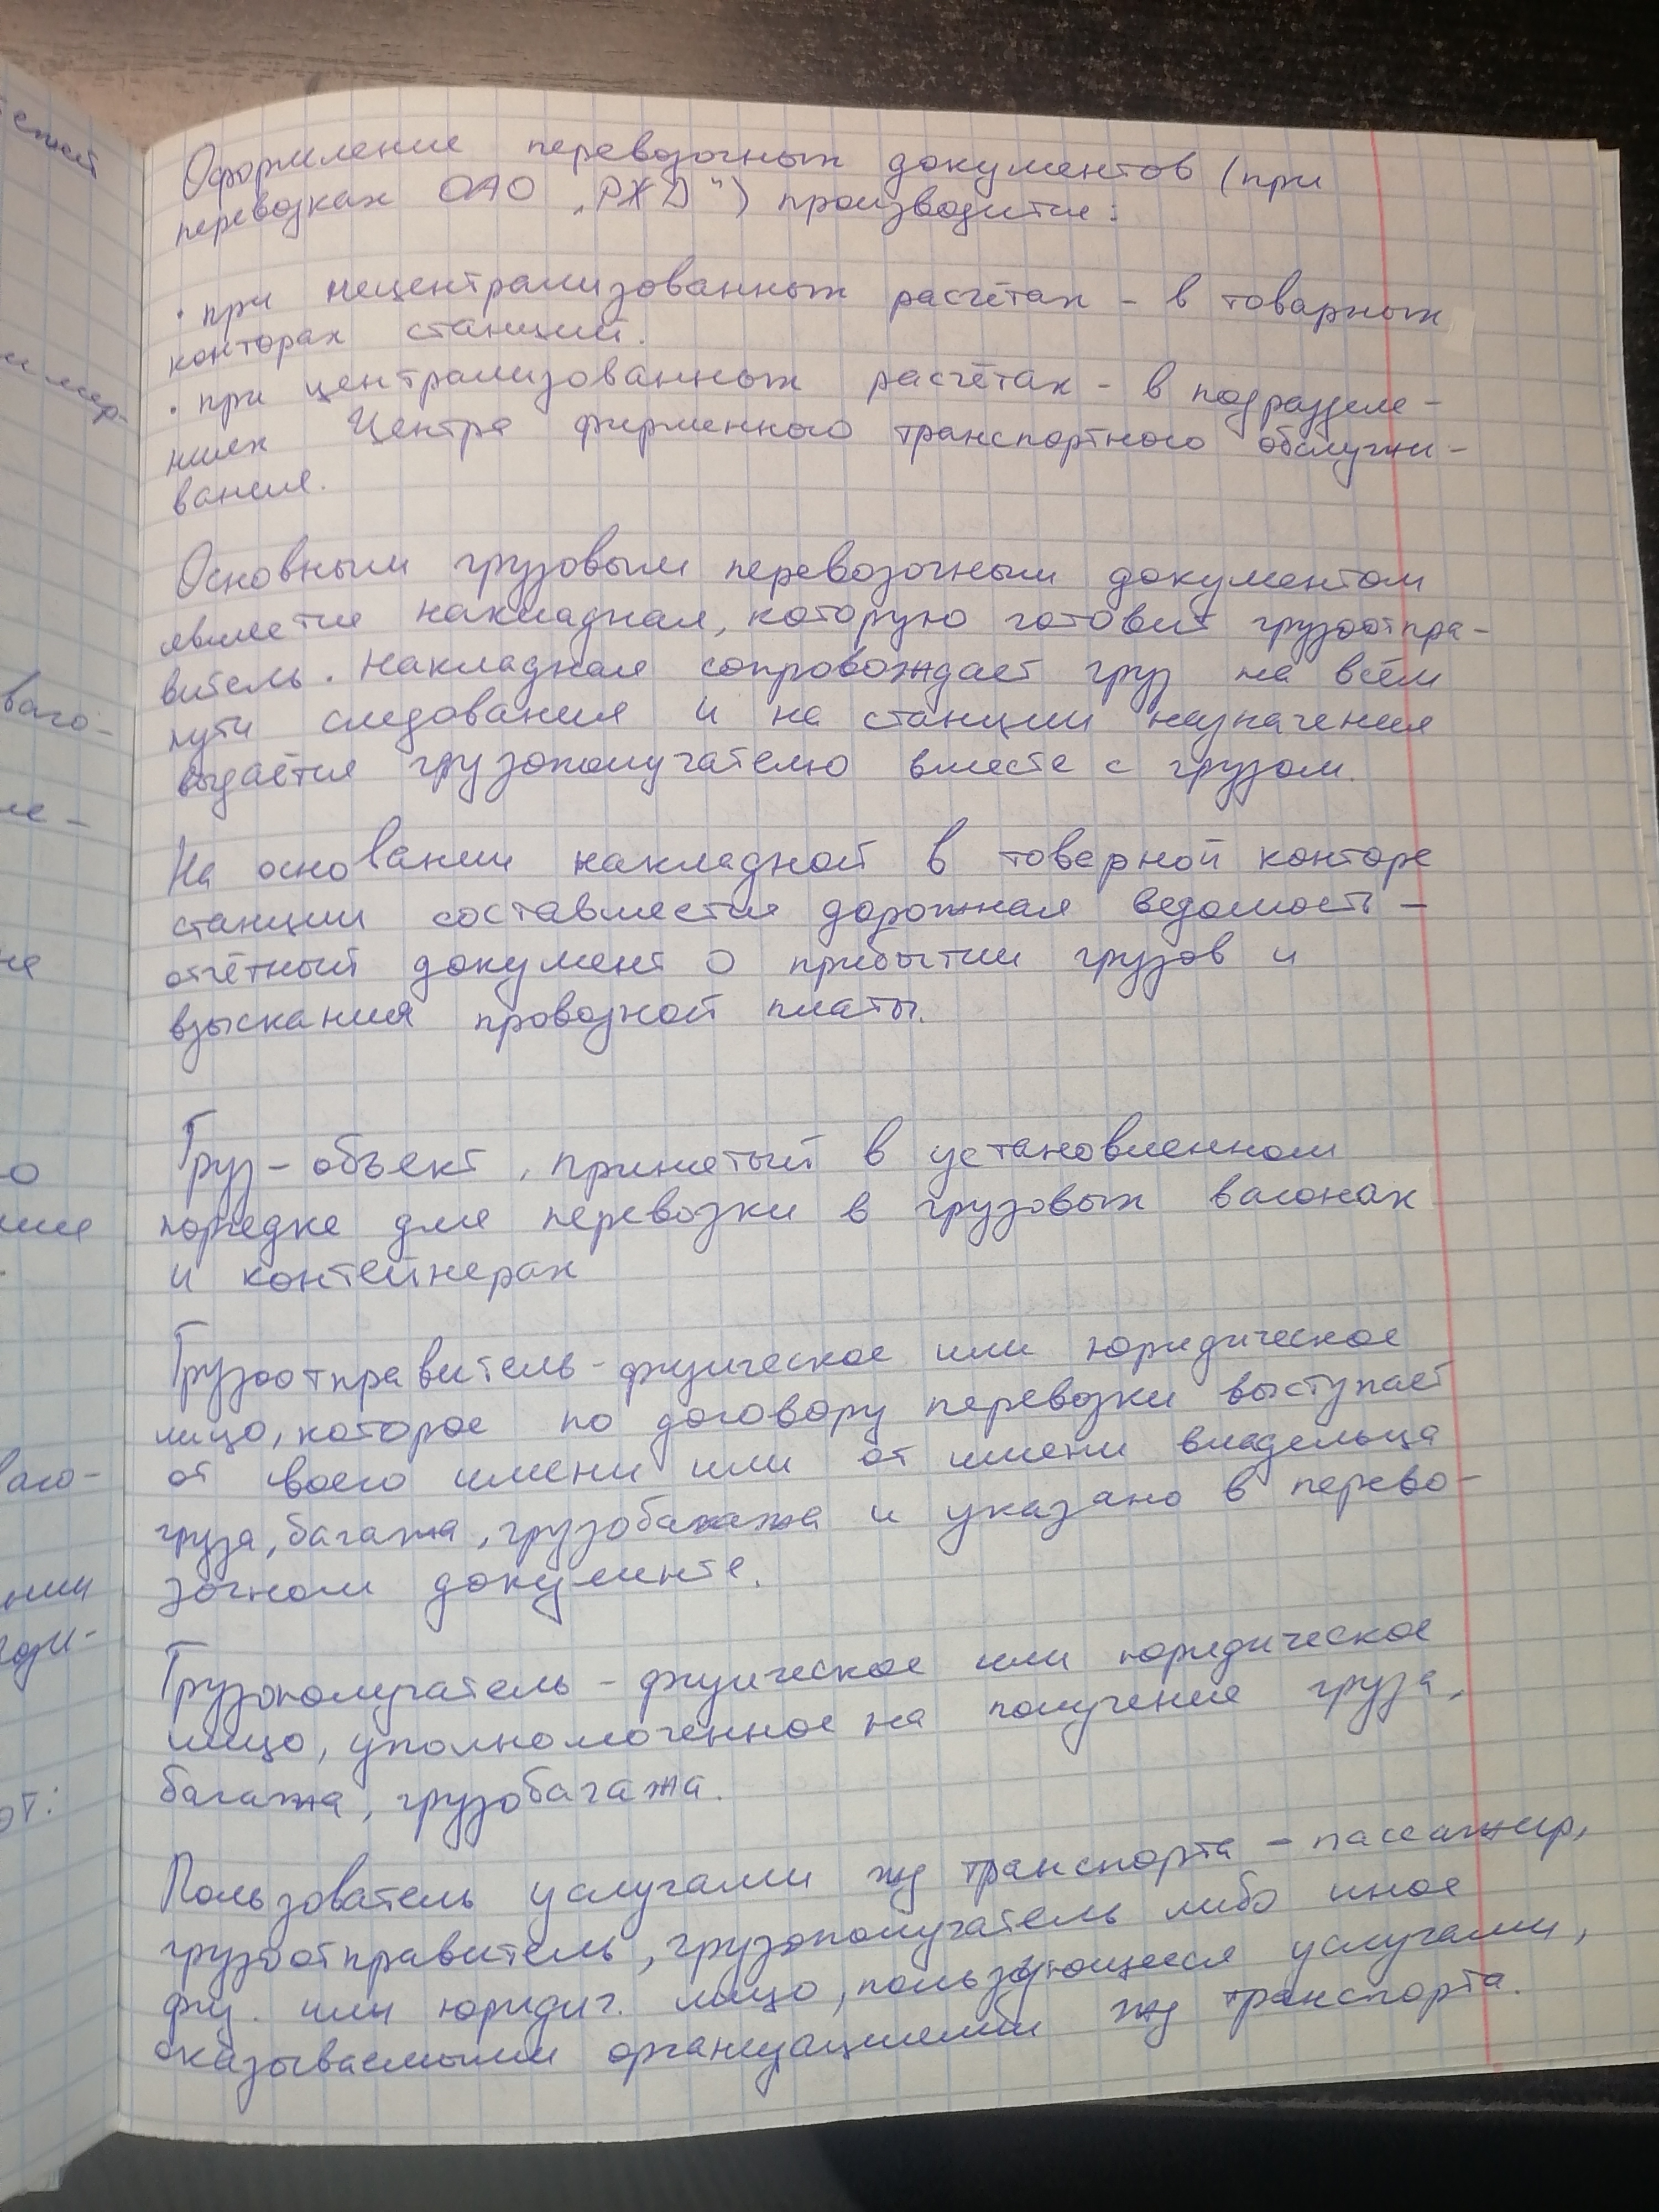 Оформление перевозочных документов (при
перевозках ОАО „РЖД") производится:
· при нецентрализованных расчётах - в товарных
конторах станций.
· при централизованных расчётах - в подразделе-
ниях Центра фирменного транспортного обслужи-
вания.
Основным грузовым перевозочным документом
является накладная, которую готовит грузоотпра-
витель. Накладная сопровождает груз на всём
пути следования и на станции назначения
выдаётся грузополучателю вместе с грузом.
На основании накладной в товарной конторе
станции составляется дорожная ведомость -
отчётный документ о прибытии грузов и
взыскания провозной платы.
Груз - объект, принятый в установленном
порядке для перевозки в грузовых вагонах
и контейнерах
Грузоотправитель - физическое или юридическое
лицо, которое по договору перевозки выступает
от своего имени или от имени владельца
груза, багажа, грузобагажа и указано в перево-
зочном документе.
Грузополучатель - физическое или юридическое
лицо, уполномоченное на получение груза,
багажа, грузобагажа.
Пользователь услугами жд транспорта - пассажир,
грузоотправитель, грузополучатель либо иное
физ. или юридич. лицо, пользующееся услугами,
оказываемыми организациями жд транспорта.